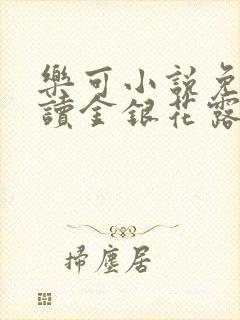 樂可小說免
讀金銀花露
掃塵居